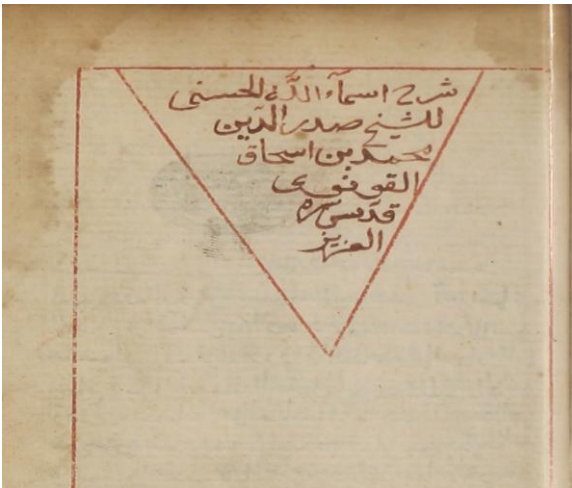 شرح اسمآء الله الحسنى
للشيخ صدر الدين
محمد بن اسحاق
القونوى
قدس سره
العزيز